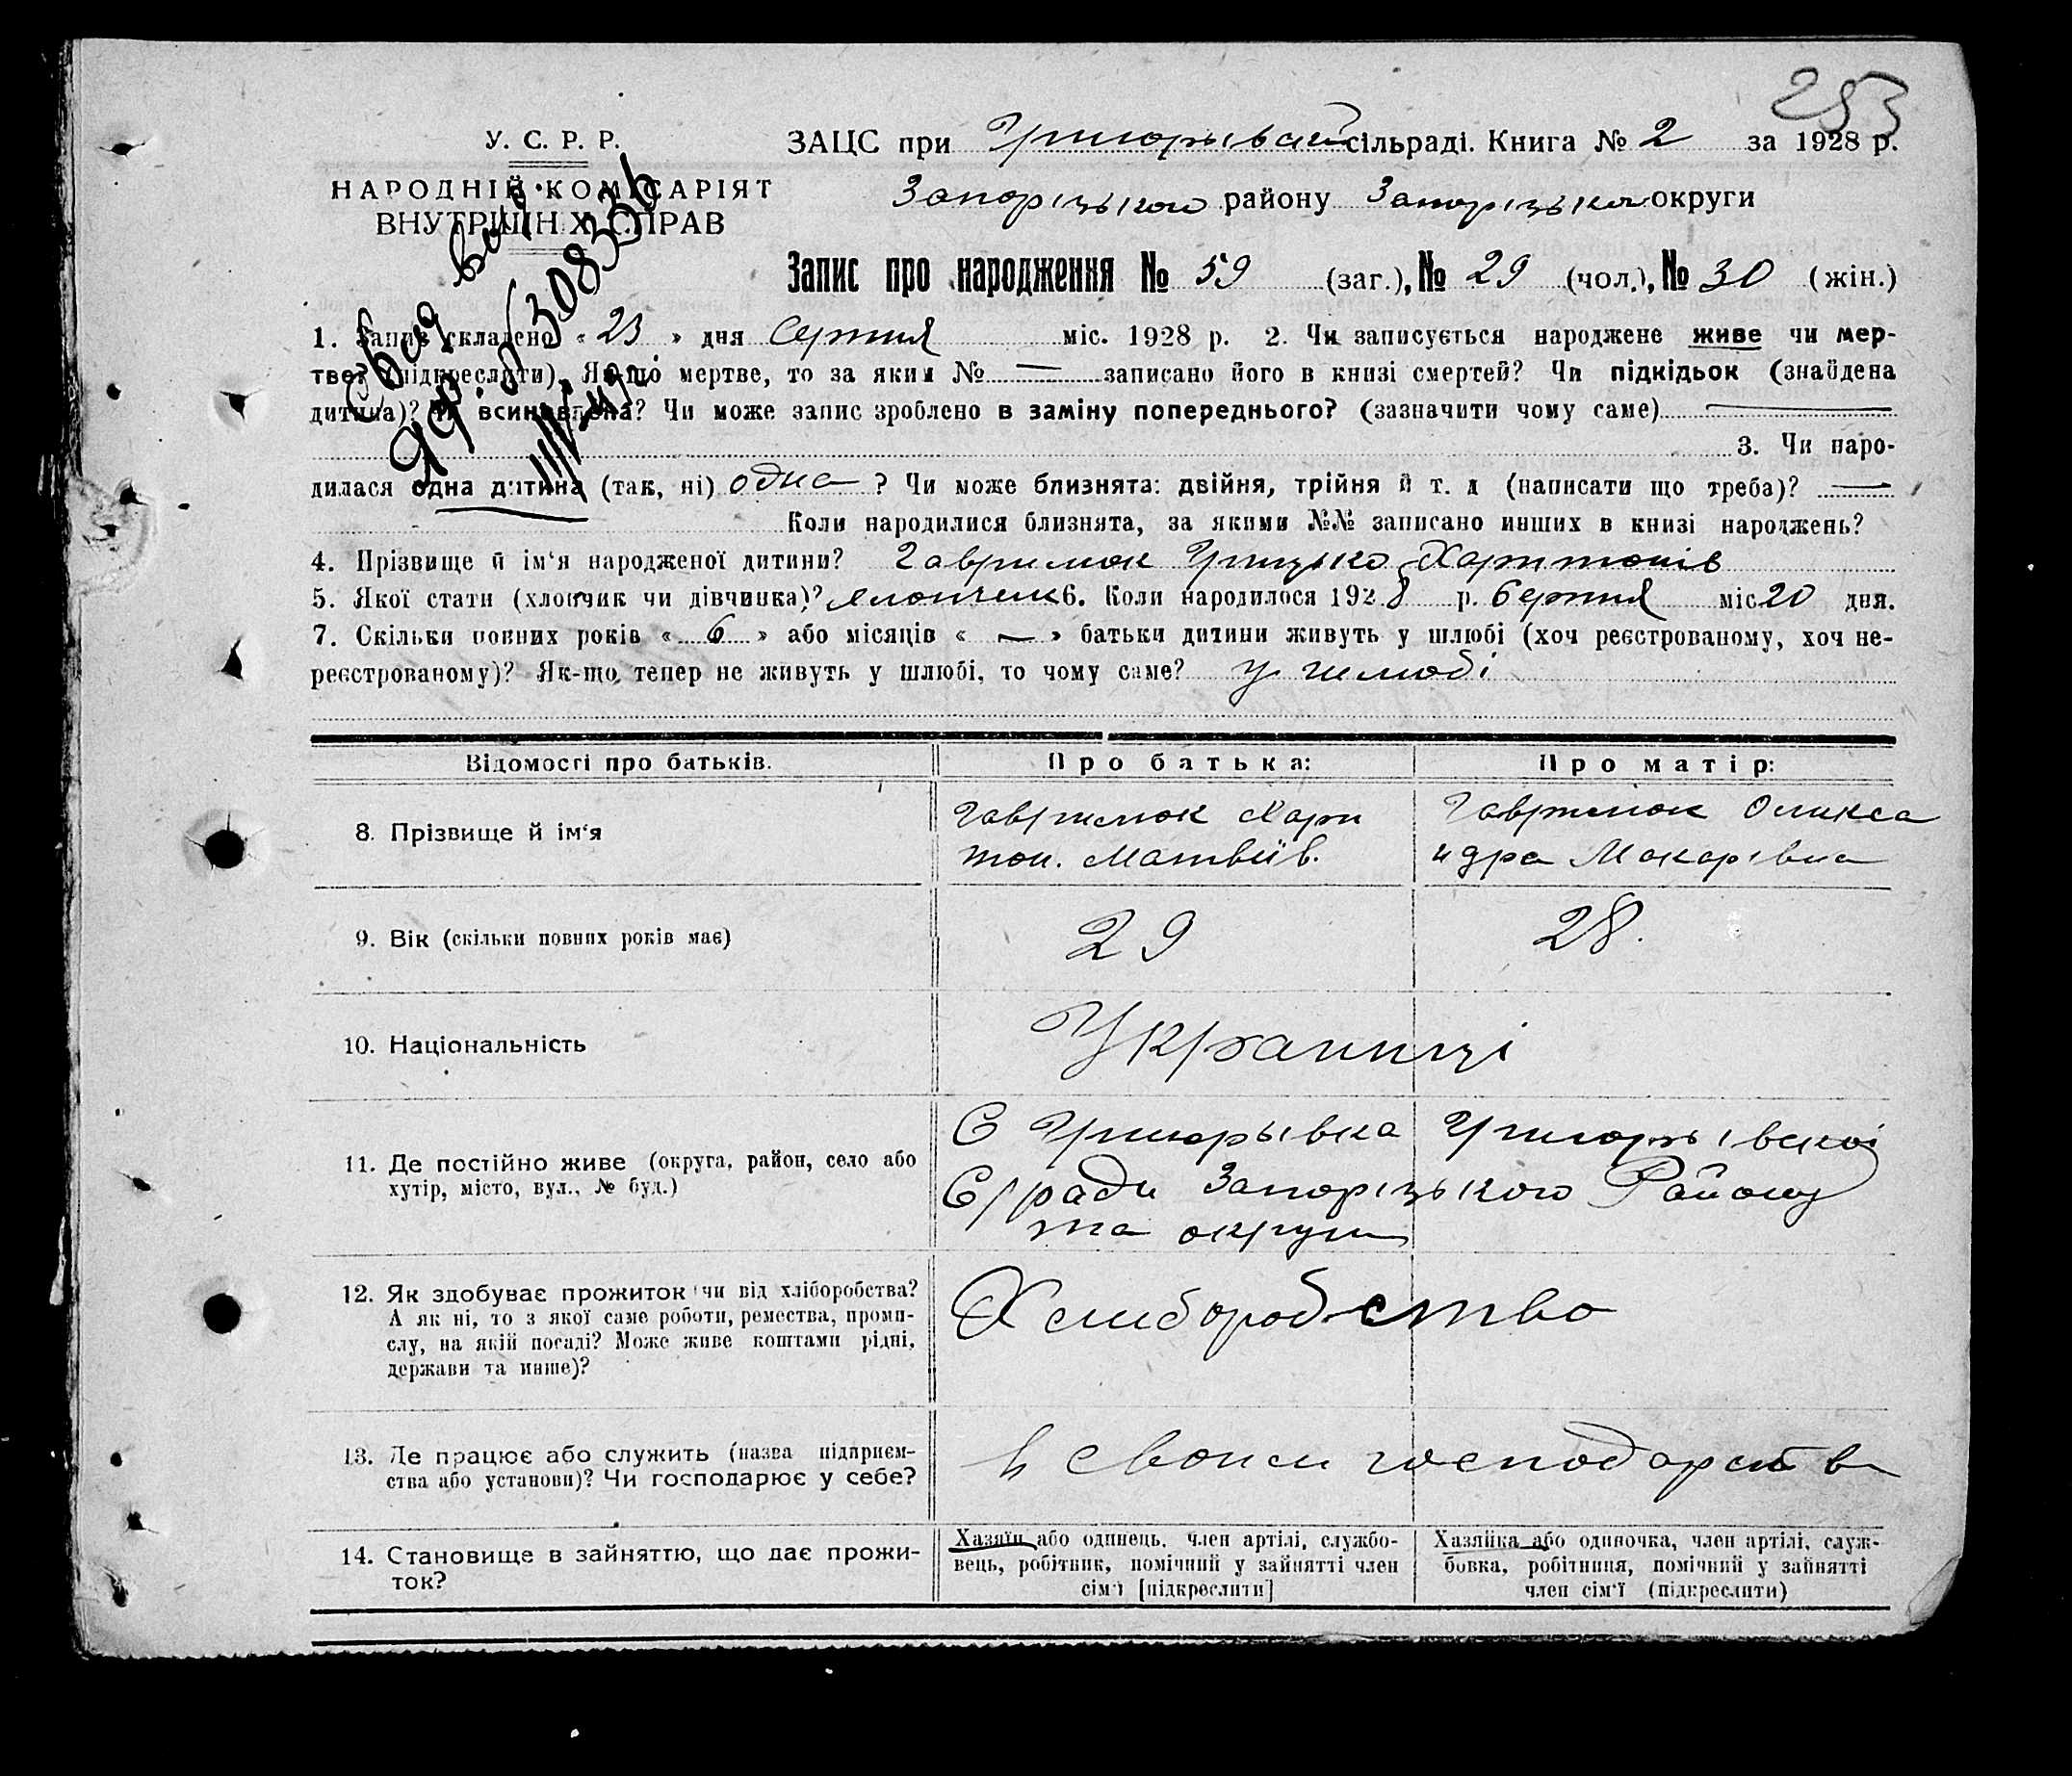 253
У. С. Р. Р.
НАРОДНІЙ КОМІСАРІЯТ
ВНУТРІШНІХ СПРАВ
ЗАЦС при сільраді. Книга № 2 за 1928 р.
Запорізького району Запорізької округи
Запис про народження № 59 (заг.), № 29 (чол.), № 30 (жін.)
1. Запис складено « 23 » дня Серпня міс. 1928 р. 2. Чи записується народжене живе чи мер-
тве? (підкреслити). Як-що мертве, то за яким № — записано його в книзі смертей? Чи підкідьок (знайдена
дитина)? Чи всиновлена? Чи може запис зроблено в заміну попереднього? (зазначити чому саме) —
3. Чи наро-
дилася одна дитина (так, ні) одна ? Чи може близнята: двійня, трійня й т. д (написати що треба)? —
Коли народилися близнята, за якими №№ записано инших в книзі народжень?
4. Прізвище й ім‘я народженої дитини? Гаврилюк Грицько Харитонів
5. Якої стати (хлопчик чи дівчинка)? хлопчик 6. Коли народилося 1928 р. Серпня міс 20 дня.
7. Скільки повних років « 6 » або місяців « — » батьки дитини живуть у шлюбі (хоч реєстрованому, хоч не-
реєстрованому)? Як-що, тепер не живуть у шлюбі, то чому саме? у шлюбі
Відомості про батьків. Про батька: Про матір:
8. Прізвище й ім‘я
Гаврилюк Хари
тон. Матвіїв.
Гаврилюк Олекса
ндра Макарівна
9. Вік (скільки повних років має)
29 28.
10. Національність
Українці
11. Де постійно живе (округа, район, село або
хутір, місто, вул., № буд.)
С Григорьівка Григорьівскої
С/ради Запорізького Району
та округи
12. Як здобуває прожиток чи від хліборобства?
А як ні, то з якої саме роботи, ремества, проми-
слу, на якій посаді? Може живе коштами рідні,
держави та инше)?
Хлиборобство
13. Де працює або служить (назва підприєм-
ства або установи)? Чи господарює у себе?
в своим господарстві
14. Становище в зайняттю, що дає прожи-
ток?
Хазяїн або одинець, член артілі, службо-
вець, робітник, помічний у зайнятті член
сім‘ї [підкреслити]
Хазяйка або одиночка, член артілі, служ-
бовка, робітниця, помічний у зайнятті
член сім‘ї (підкреслити)